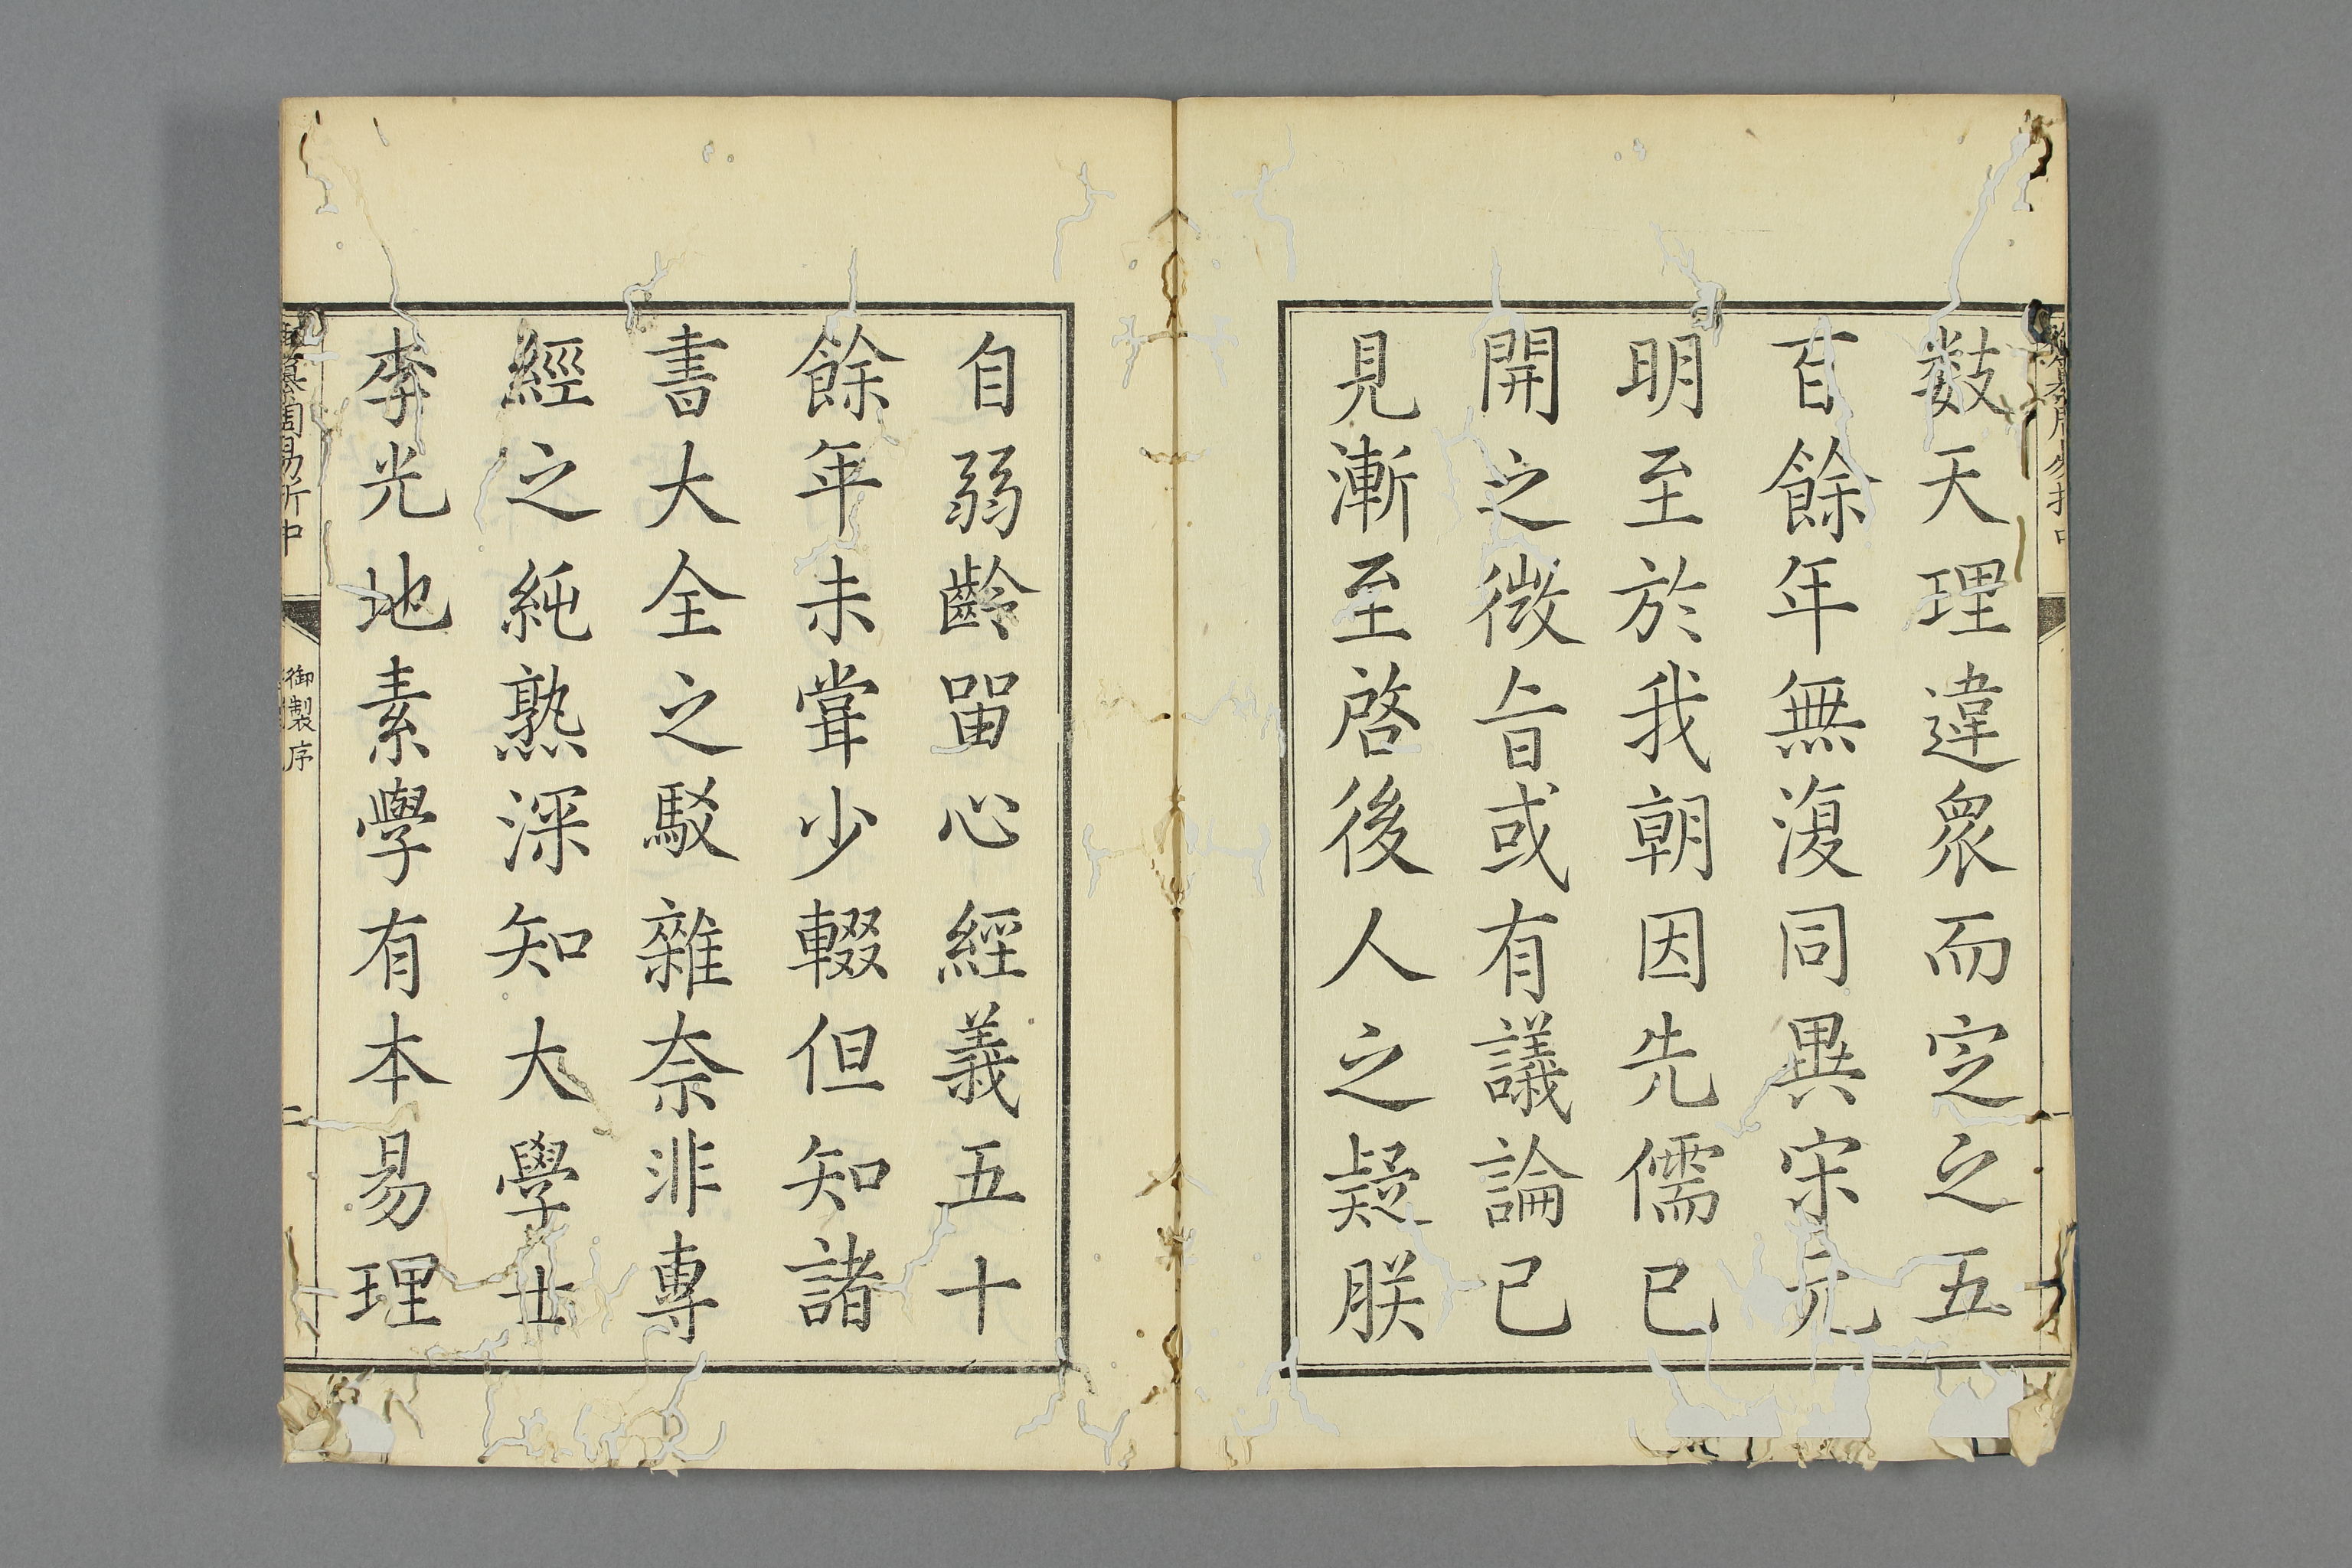 數天理違眾而定之五
百餘年無復同異宋元
明至於我朝因先儒已
開之微旨或有議論已
見漸至啓後人之疑朕
自弱齡畱心經義五十
餘年未嘗少輟但知諸
書大全之駁雜奈非專
經之純熟深知大學士
李光地素學有本易理
纂周易折中
御製序
二